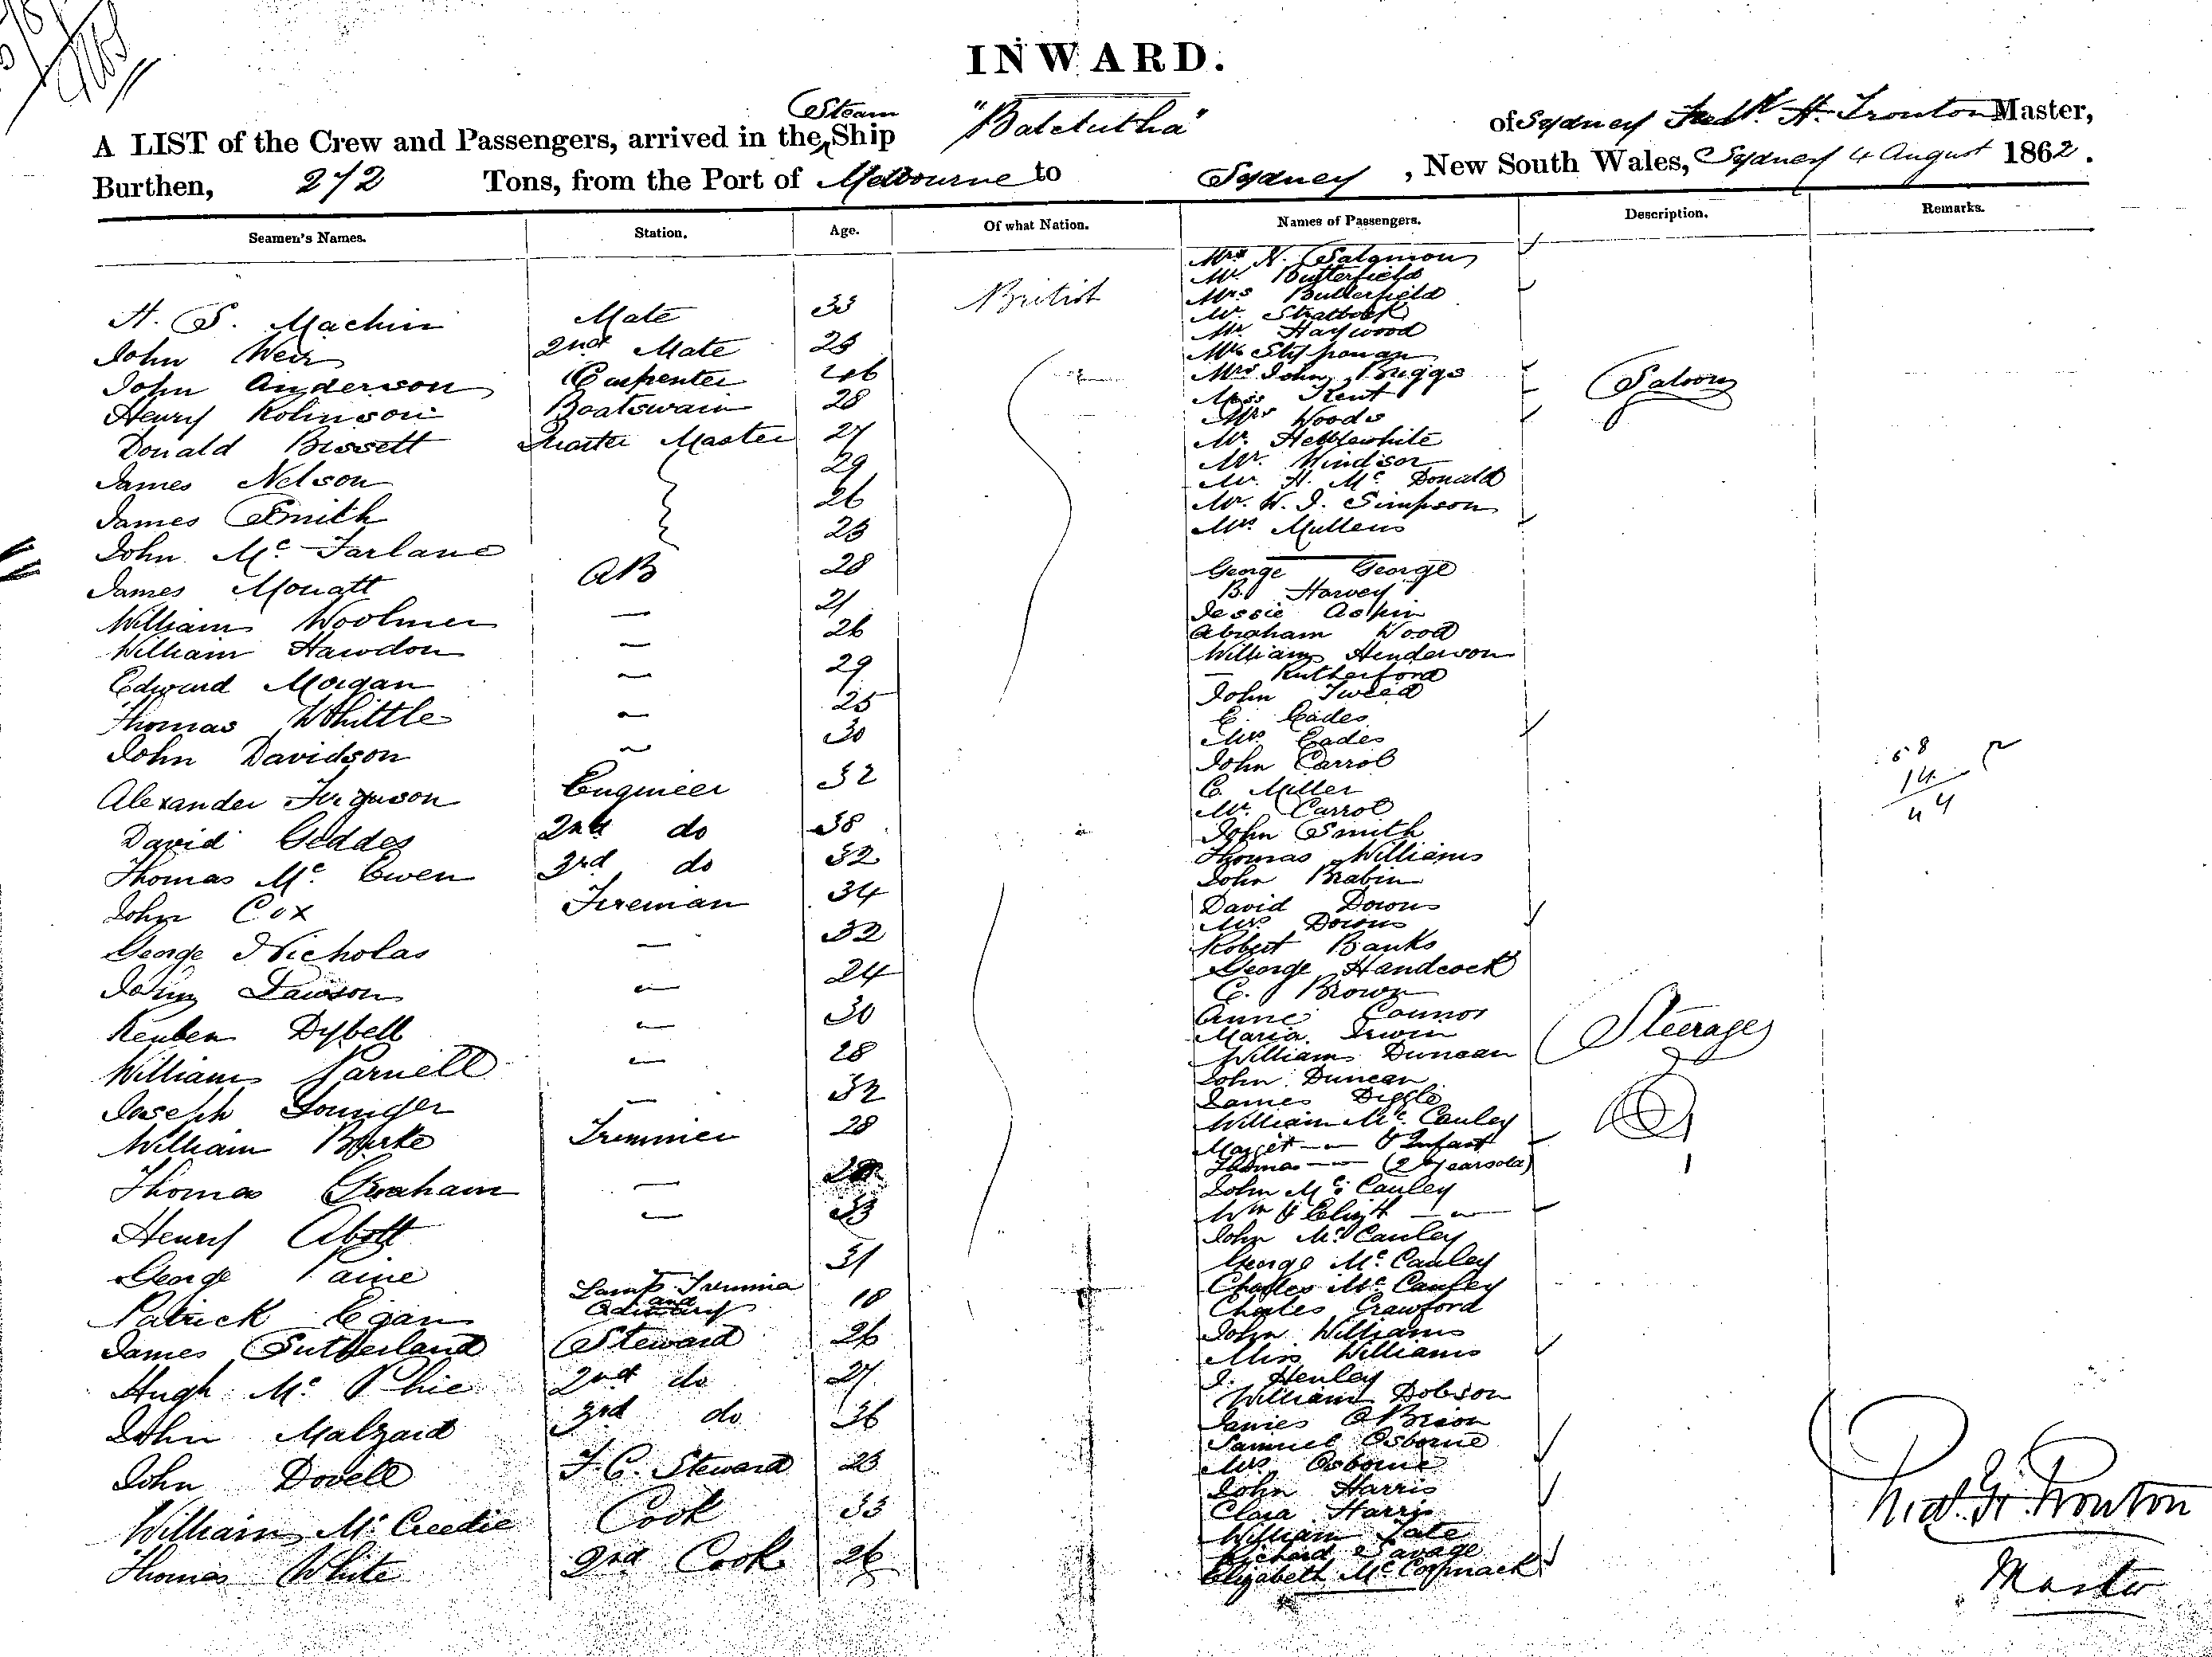 INWARD.
A LIST of the Crew and Passengers, arrived in the Steam Ship "Balclutha" of Sydney Fredk. H. Trouton Master,
Burthen, 272 Tons, from the Port of Melbourne to Sydney, New South Wales, Sydney 4 August 1862.
Seamen's Names. Station. Age. Of what Nation. Names of Passengers. Description. Remarks.
H. S. Machin Mate 33 British
John Weir 2nd Mate 23
John Anderson Carpenter 46
Henry Robinson Boatswain 28
Donald Bissett Quarter Master 27
James Nelson 29
James Smith 26
John Mc Farlane 23
James Mouatt AB 28
William Woolmer — 21
William Hawdon — 26
Edward Morgan — 29
Thomas Whittle — 25
John Davidson — 30
Alexander Ferguson Engineer 32
David Geddes 2nd do 38
Thomas Mc Ewen 3rd do 32
John Cox Fireman 34
George Nicholas — 32
John Dawson — 24
Reuben Dybell — 30
William Parnell — 28
Joseph Younger — 32
William Burke Trimmer 28
Thomas Graham —
Henry Abott — 33
George Paine 31
Patrick Egan Lamp Trimmer and 18
James Sutherland Steward 26
Hugh Mc Phie 2nd do 27
John Malzard 3rd do 36
John Dovell F.C. Steward 23
William Mc Creedie Cook 33
Thomas White 2nd Cook 26
Mrs N. Salamon
Mr. Butterfield
Mrs Butterfield
Mr.
Mr Haywood
Mrs John Briggs
Miss Kent
Mrs Woods
Mr. Hebblewhite
Mr. Windsor
Mr. H. Mc Donald
Mr. W. J. Simpson
Mrs Mullens
Saloon
George George
B. Harvey
Jessie Aspin
Abraham Wood
William Henderson
— Rutherford
John Tweed
C. Eades
Mrs Eades
John Carrol
C. Miller
Mr. Carrol
John Smith
Thomas Williams
John Brabin
David Downs
Mrs Downs
Robert Banks
George Handcock
C. Brown
Anne Connor
Maria Irwin
William Duncan
John Duncan
James Diggle
William Mc Cauley
Margt — & Infant
Thomas — (2 years old)
John Mc Cauley
Wm & Elizth —
John Mc Cauley
George Mc Cauley
Charles Mc Cauley
Charles Crawford
John Williams
Miss Williams
J. Henley
William Dobson
James O Brien
Samuel Osborne
Mrs Osborne
John Harris
Clara Harris
William Tate
Richard Savage
Elizabeth Mc Cormack
Steerage
58
14
44
Fredk. H. Trouton
Master